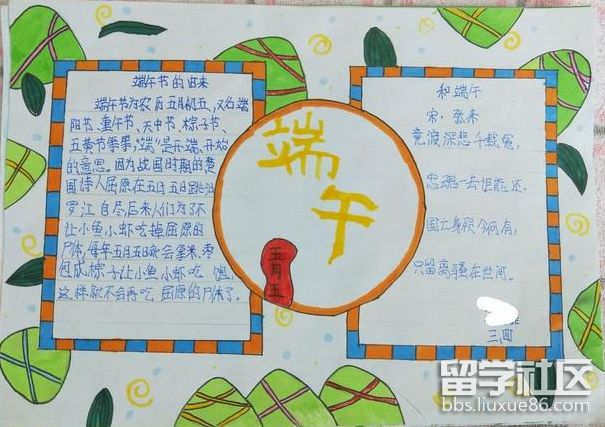 端午节的由来
端午节为农历五月初五，又名端
阳节、重午节、天中节、粽子节、
五黄节等等，"端"是开端、开始
的意思。因为战国时期的楚
国诗人屈原在五月五日跳汨
罗江自尽后来人们为了不
让小鱼小虾吃掉屈原的
尸体，每年五月五日就会拿米、枣
包成粽子让小鱼小虾吃饱，
这样就不会再吃屈原的尸体了。
端
午
五月五
和端午
宋·张耒
竞渡深悲千载冤，
忠魂一去讵能还，
国亡身殒今何有，
只留离骚在世间。
三四
留学社区
bbs.liuxue86.com